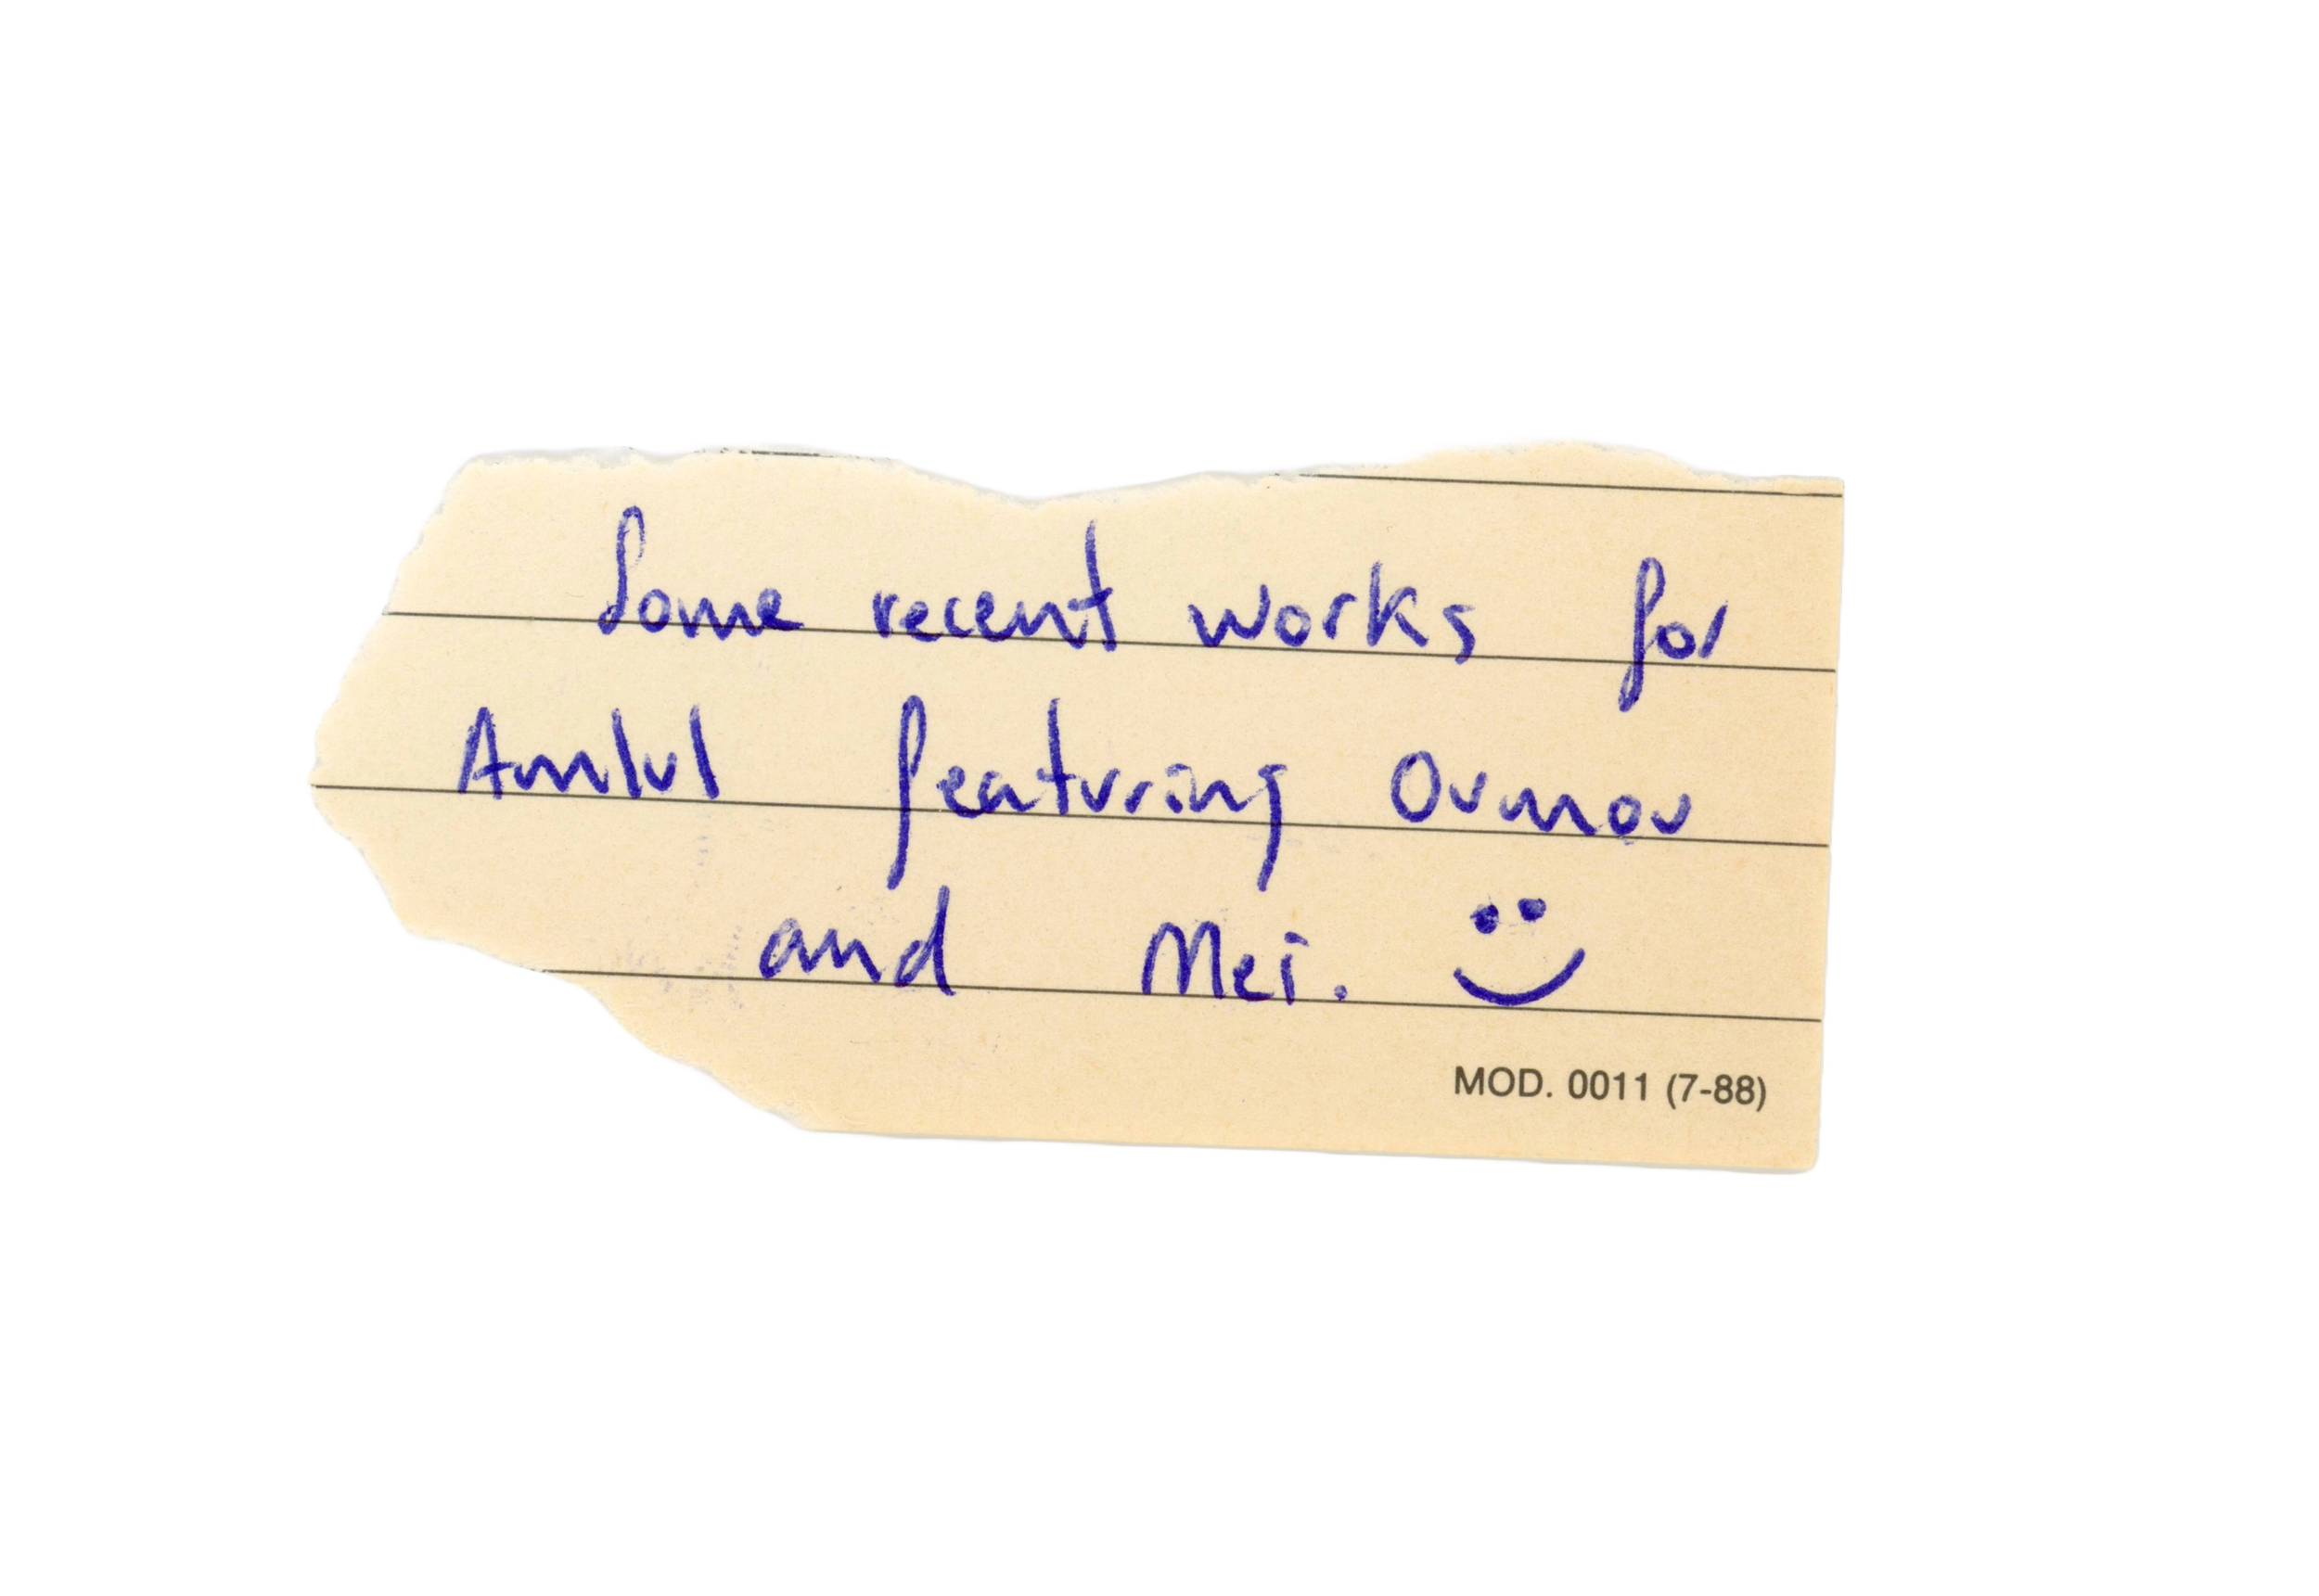 Some recent works for
Amlul featuring Oumou
and Mei.
MOD. 0011 (7-88)